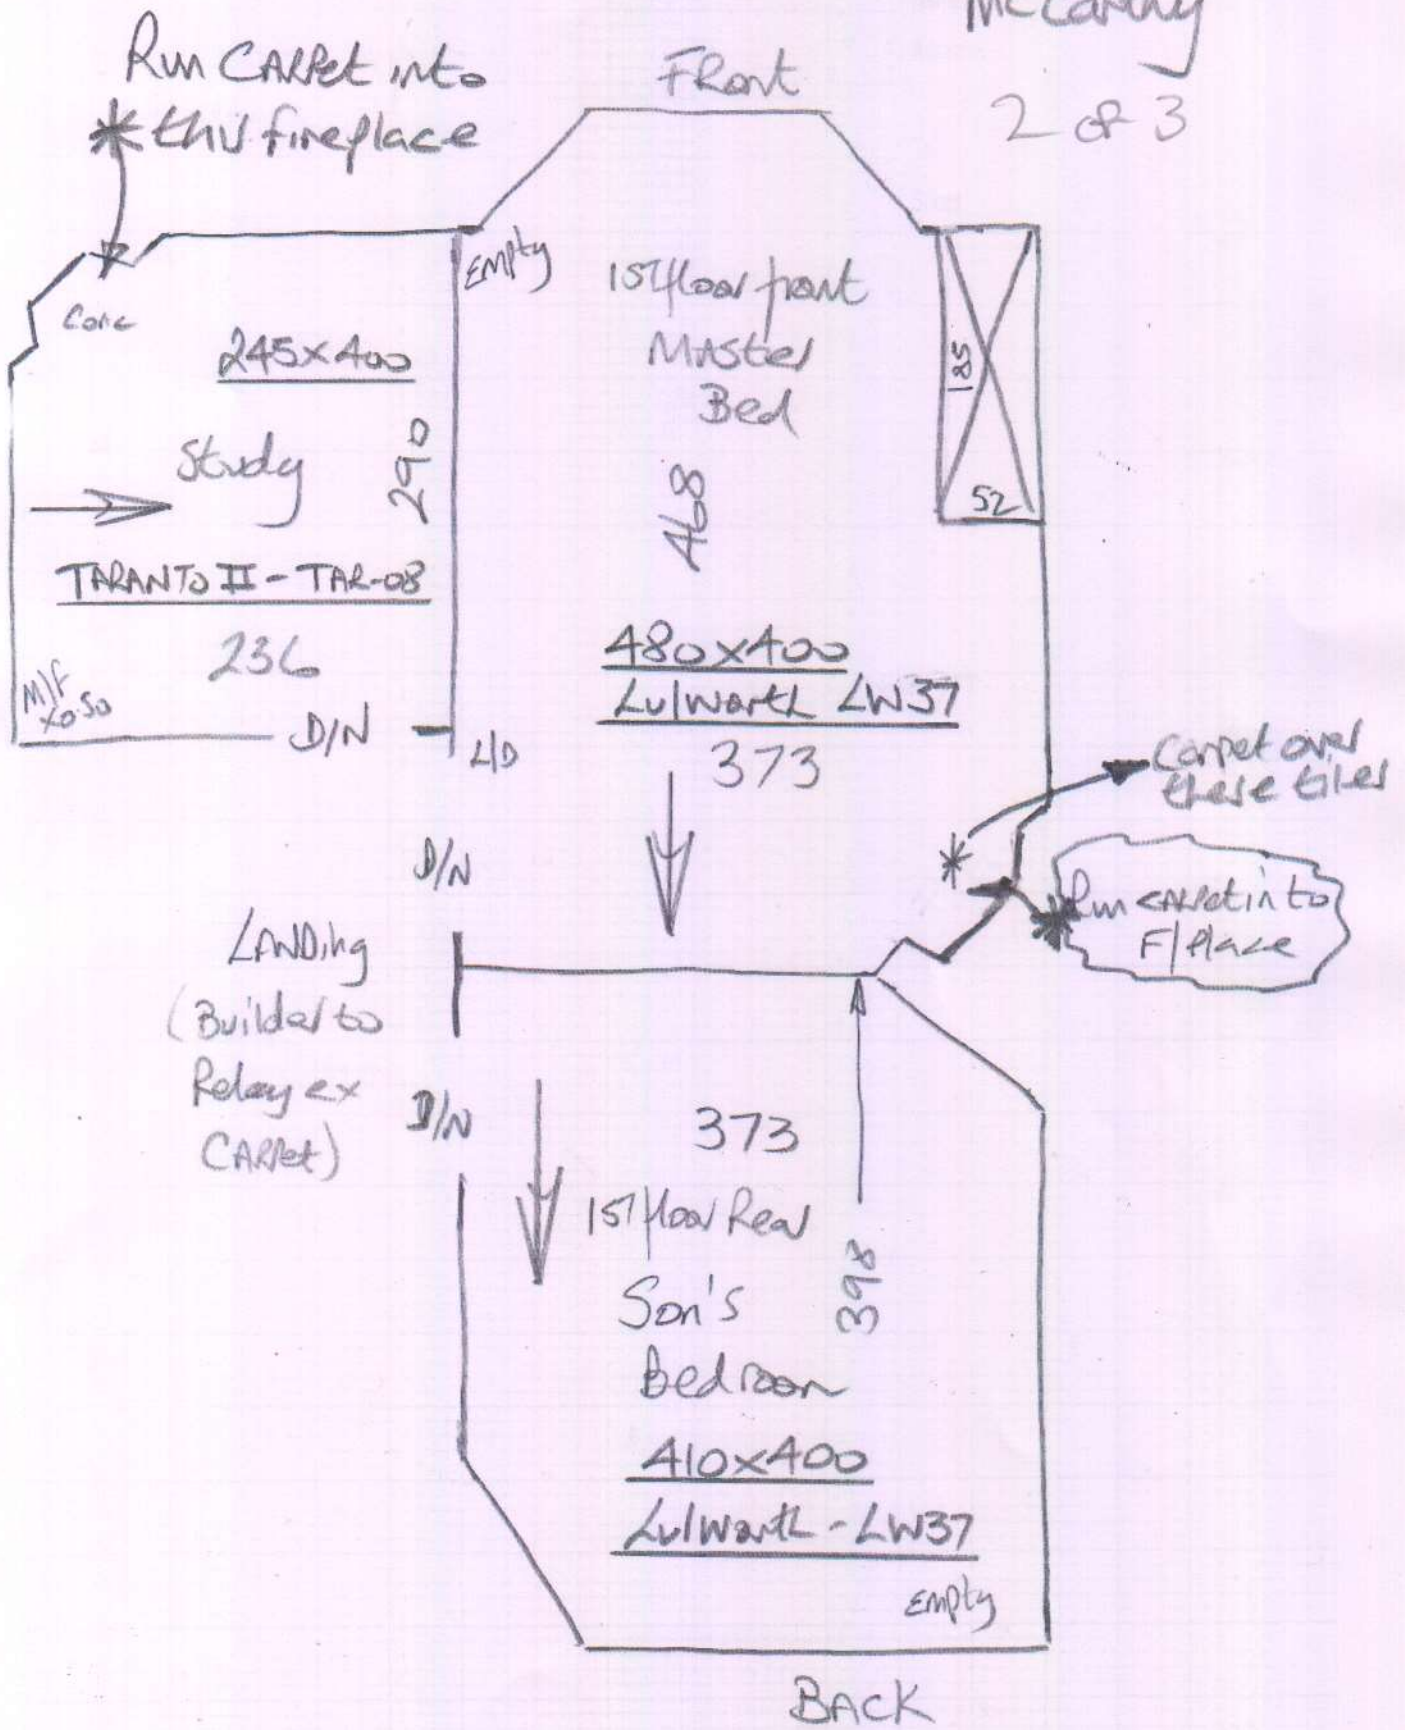 McCarthy
2 OF 3
Run CARPet into
* this fireplace
FRont
Empty
1ST floor front
MASter
Bed
185
52
Conc
245x400
Study
290
468
TARANTO II - TAR-08
236
M/F
x0.50
D/N
L/D
480x400
Lulworth LW37
373
Carpet over
these tiles
*
D/N
* Run CARPet into
F/Place
LANDing
(Builder to
Relay ex
CARPet)
D/N
373
1ST floor Rear
Son's
Bedroom
398
410x400
Lulworth - LW37
Empty
BACK